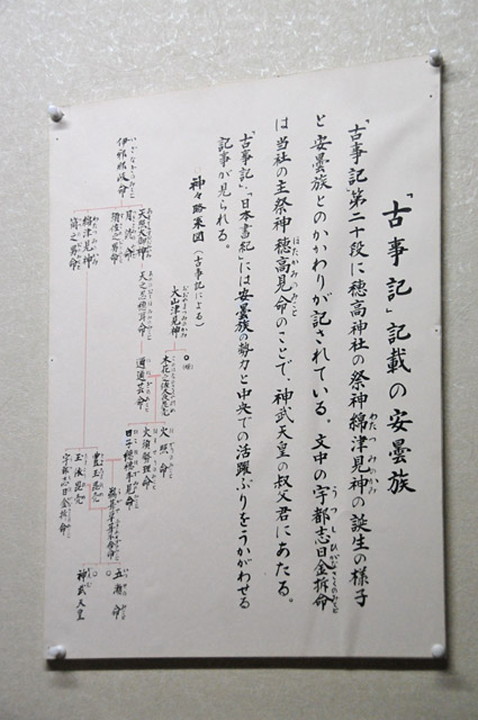 「古事記」記載の安曇族
「古事記」第二十段に穂高神社の祭神綿津見神の誕生の様子
わたつみのかみ
と安曇族とのかかわりが記されている。文中の宇都志日金拆命
うつしひがなさくのみこと
は当社の主祭神穂高見命のことで、神武天皇の叔父君にあたる。
ほたかみのみこと
「古事記」、「日本書紀」には安曇族の勢力と中央での活躍ぶりをうかがわせる
記事が見られる。
神々略系図（古事記による）
大山津見神
木花之佐久夜毘売
伊邪那岐命
天照大御神
月読命
須佐之男命
綿津見神
筒之男命
天之忍穂耳命
邇邇芸命
火照命
火須勢理命
日子穂穂手見命
豊玉毘売
玉依毘売
宇都志日金拆命
五瀬命
神武天皇